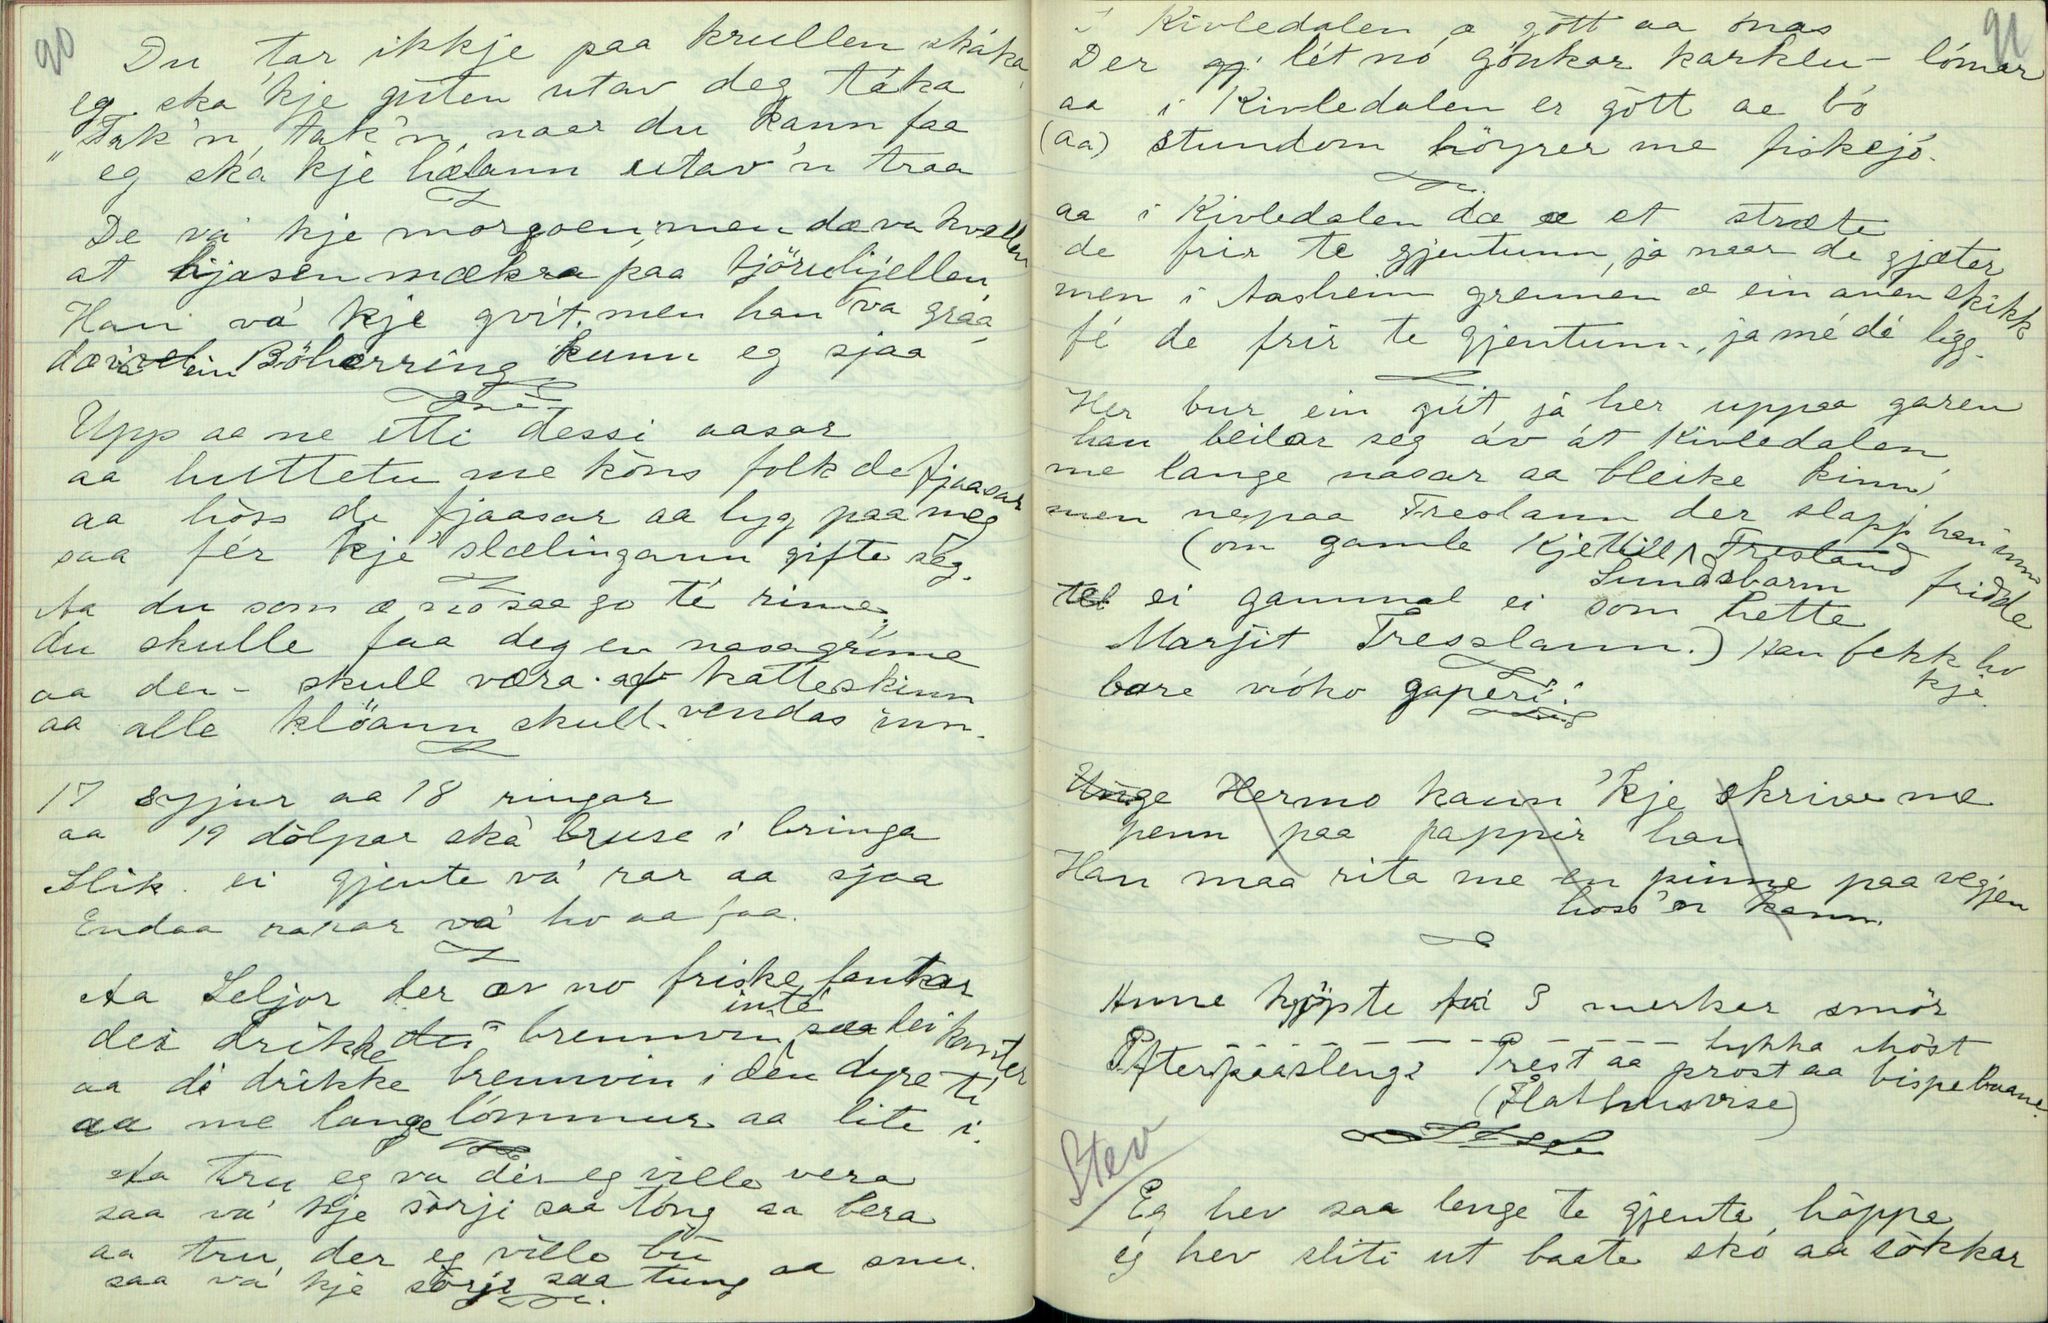 90
Du tar ikkje paa krullen skáka
eg ska 'kje guten utav deg táka
"Tak'n, tak'n, naar du kann faa
eg ska kje hælann utav'n traa
De va' kje morgoen, men dæ va kvelden
at kjasen mækra paa
Han va' kje gvit, men han va graa
dæ va ein Böherring kunn eg sjaa
Upp aa ne etti dessi aasar
aa huttetu me kons folk de fjaasar
aa hoss de fjaasar aa lyg paa meg
saa fér kje slælingann gifte seg.
Aa du som æ no saa go te rime,
du skulle faa deg en nasagrime
aa den skull væra av katteskinn
aa alle klöann skull vendas inn.
17 syljur aa 18 ringar
aa 19 dolpar ska bruse i bringa
Slik ei gjente va' rar aa sjaa
Endaa rarar va' ho aa faa.
Aa Seljor der er no friske fantar
dei drikke brennvin inte saa lei kanter
aa di drikke brennvin i den dyre ti
aa me lange lommur aa lite i.
Aa tru eg va der eg ville vera
saa va' kje sorji saa tong aa bera
aa tru der eg ville bu
saa va' kje sorji saa tung aa snu.
91
I Kivledalen æ gott aa
Der lét no gonkar karklu- lómar
aa i Kivledalen er gott ae bó
(aa) stundom höyrer me fiskejó.
aa i Kivledalen dæ æ et stræte
de frir te gjentunn, ja naar de gjæter
men i Aasheim grennen æ ein aven skikk
fé de frir te gjentunn, ja mé dé ligg.
Her bur ein gut ja her uppaa garen
han beilar seg av át Kivledalen
me lange nasar aa bleike kinn,
men nepaa Treslann der slapp han inn
(om gamle Kjetill Tresland Sundsbarm fridde
tel ei gammal ei som hette
Marjit Tresslann.) Han fekk ho kje
bare gaperi.
Unge Hermo kann 'kje skrive me
penn paa pappir han
Han maa rita me en pinne paa vegjen
hoss'n kann.
Anne kjöpte fai 3 merker smör
- - - - - lukka
Efterpaasleng: Prest aa prost aa bispebaane.
(Flathusvise)
Stev
Eg hev saa lenge te gjente höppe
eg hev sliti ut baate sko aa sokkar